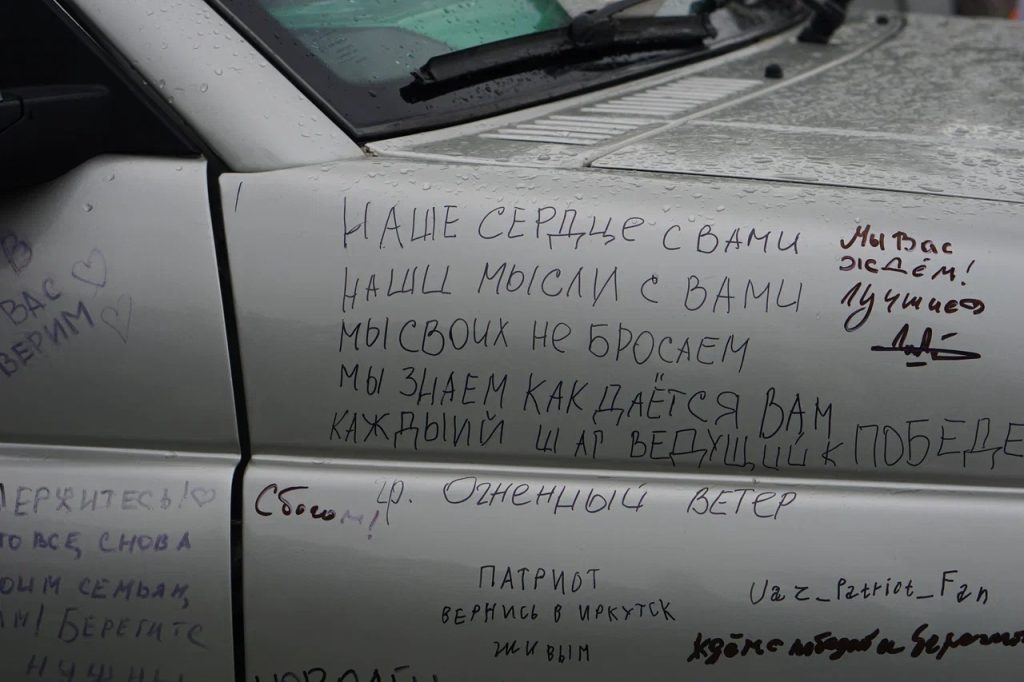 В
ВАС
ВЕРИМ
НАШЕ СЕРДЦЕ С ВАМИ
НАШИ МЫСЛИ С ВАМИ
МЫ СВОИХ НЕ БРОСАЕМ
МЫ ЗНАЕМ КАК ДАЁТСЯ ВАМ
КАЖДЫИЙ ШАГ ВЕДУЩИЙ К ПОБЕДЕ
гр. Огненный ВЕТЕР
Мы Вас
ждём!
Лучшие
С богом!
ПАТРИОТ
ВЕРНИСЬ В ИРКУТСК
ЖИВЫМ
Uaz_Patriot_Fan
Ждём с победой и
ЕРЖИТЕСЬ!
ВСЕ СНОВА
СЕМЬЯМ
БЕРЕГИТЕ
НУЖНЫ